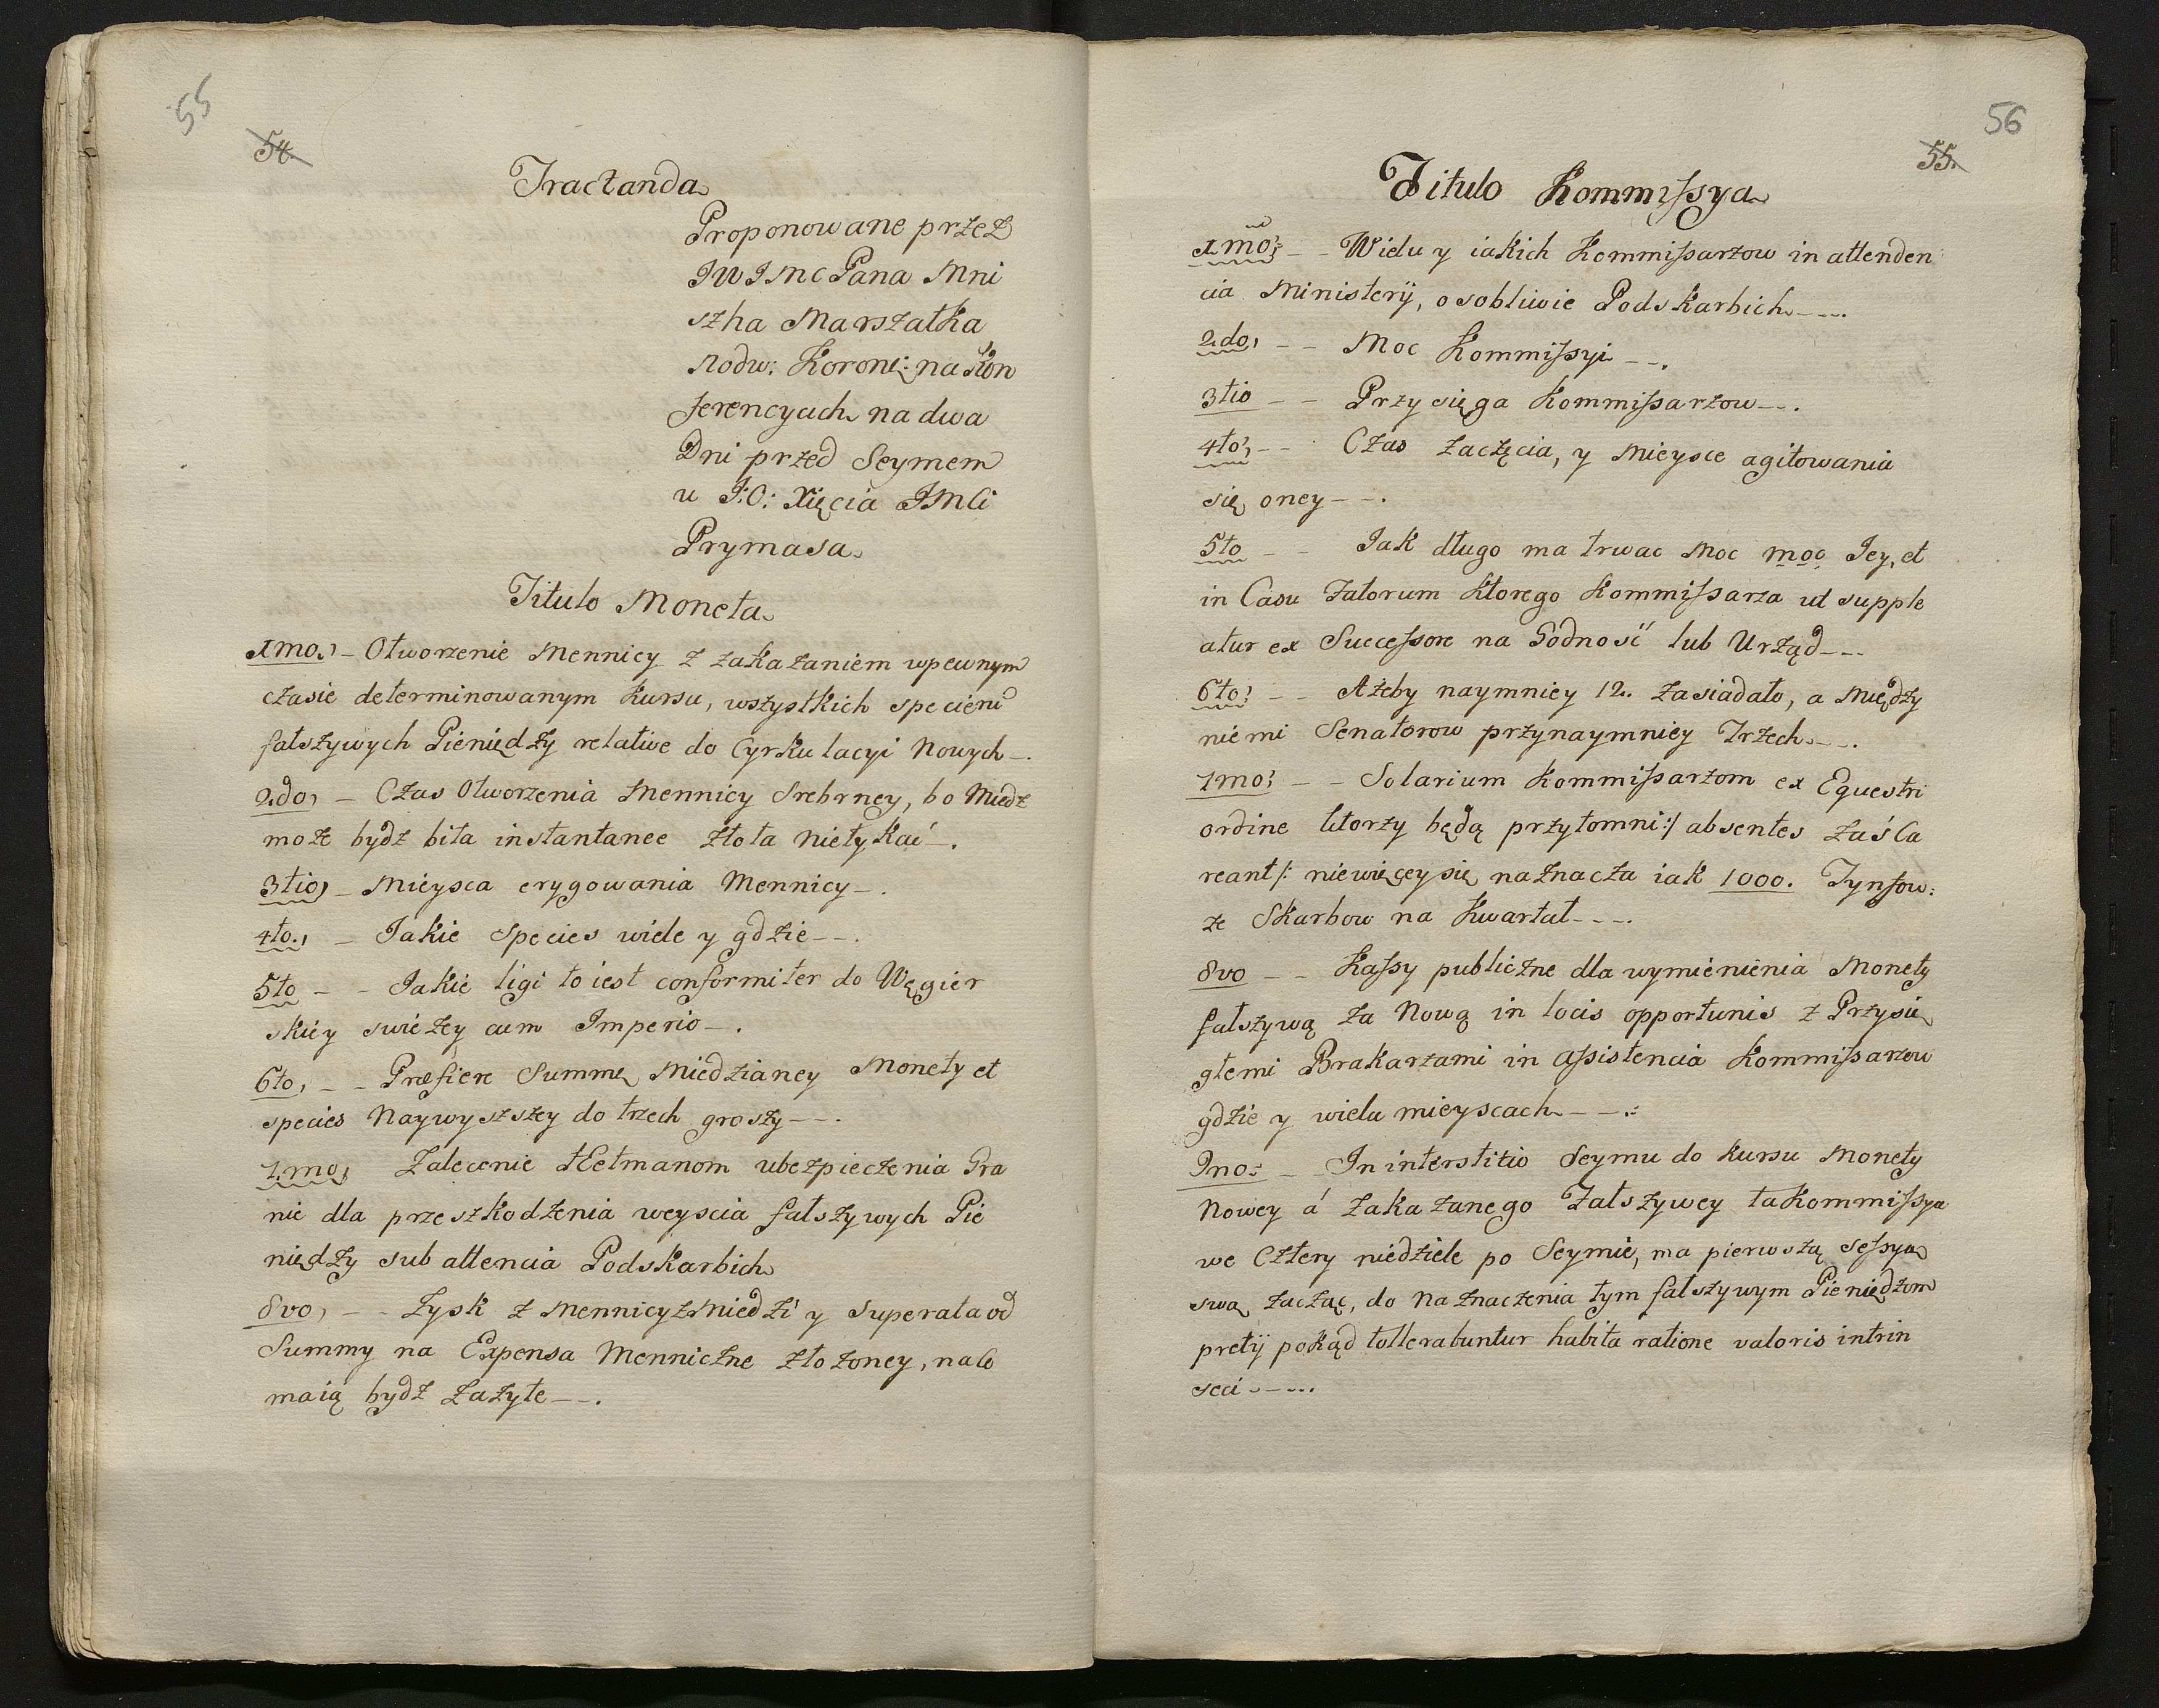 55
54.
Tractanda
Proponowane przez
JWJMC Pana Mni
szha Marszałka
Nadw: Koron: na Kon
ferencyach na dwa
Dni przed Seymem
u J:O: Xięcia JMCi
Prymasa
Titulo Moneta
1mo, – Otworzenie Mennicy z zakazaniem wpewnym
czasie determinowanym Kursu, wszystkich specierū
fałszywych Pieniędzy relative do Cyrkulacyi Nowych –.
2do, – Czas Otworzenia Mennicy Srebrney, bo Miedź
może bydź bita instantanee złota nietykać –.
3tio, – Mieysca erygowania Mennicy –.
4to., – Jakie Species wiele y gdzie – –.
5to – – Jakie ligi to iest conformiter do Węgier
skiey swieżey cum Imperio –.
6to, – – Præfiere Summę Miedzianey Monety et
species Naywyszszey do trzech groszy – – –.
7mo, Zalecenie Hetmanom ubezpieczenia Gra
nic dla przeszkodzenia weyscia fałszywych Pie
niędzy sub attencia Podskarbich
8vo, – – Zysk z Mennicy z Miedzi y Superata od
Summy na Expensa Menniczne złożoney, na Co
maią bydź zażyte – –.
56
55.
Titulo Kommissya
1mo, – – Wielu y iakich Kommissarzow in attenden
cia Ministerij, osobliwie Podskarbich – – –.
2do, – – Moc Kommissyi – –.
3tio – – Przysięga Kommissarzow – –.
4to, – – Czas zaczęcia, y Mieysce agitowania
się oney – – –.
5to – – Jak długo ma trwac Moc moc Jey, et
in Casu Fatorum Ktorego Kommissarza ut supple
atur ex Successore na Godność lub Urząd – – –
6to, – – Ażeby naymniey 12. zasiadało, a Między
niemi Senatorow przynaymniey Trzech – – –.
7mo, – – Solarium Kommissarzom ex Equestri
ordine ktorzy będą przytomni :/ absentes zaś Ca
reant /: niewięcey się naznacza iak 1000. Tynfow:
ze Skarbow na Kwartał – – –.
8vo – – Kassy publiczne dla wymienienia Monety
fałszywą za Nową in locis opportunis z Przysię
głemi Brakarzami in assistencia Kommissarzow
gdzie y wielu mieyscach – – –:
9no: – In interstitio Seymu do Kursu Monety
Nowey á zakazanego Fałszywey ta Kommissya
we Cztery niedziele po Seymie, ma pierwszą Sessyą
swą zacząc, do Naznaczenia tym fałszywym Pieniędzom
pretij pokąd tollerabuntur habita ratione valoris intrin
seci – – –.